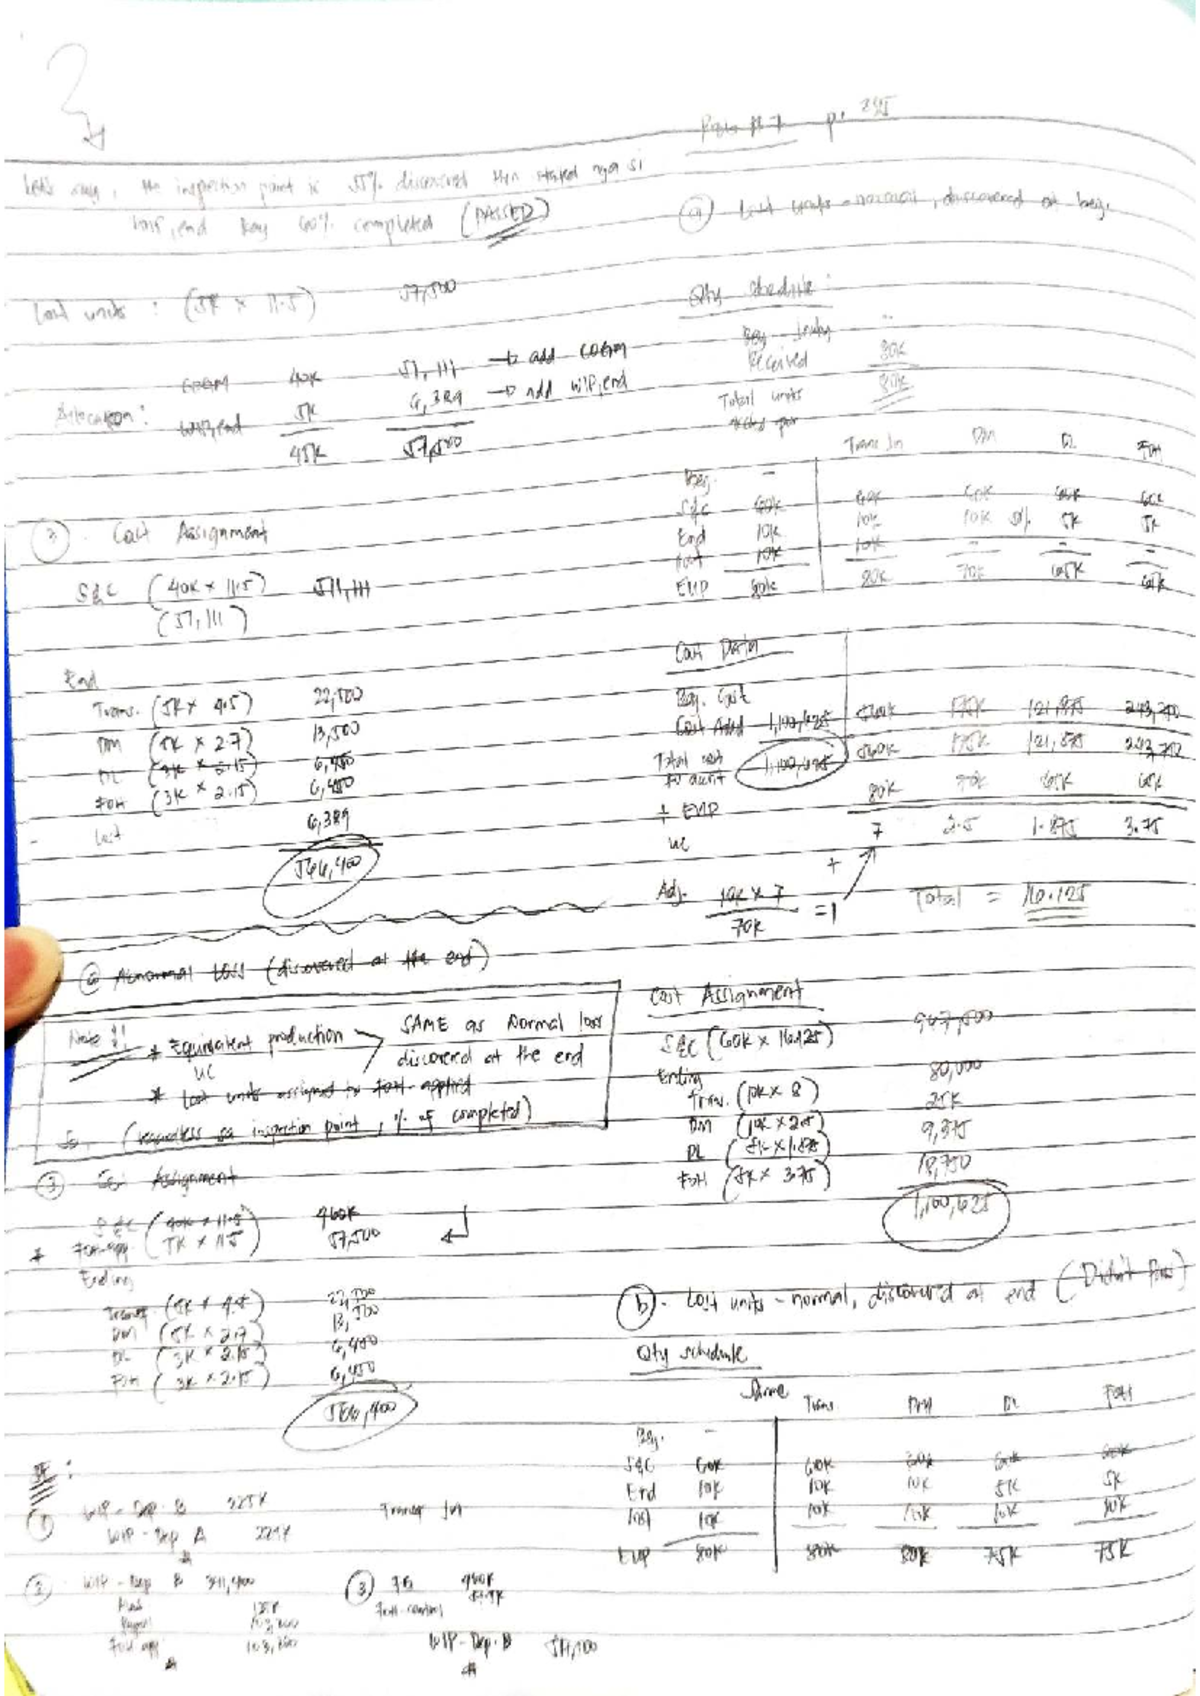 p. 245
Let's say, the inspection point is 55% discovered then stated nga si
WIP, end kay 60% completed (PASSED)
Lost units : (5K x 11.5) 57,500
COGM 40K 51,111 → add COGM
Allocation : WIP, end 5K 6,389 → add WIP, end
45K 57,500
3. Cost Assignment
S&C (40K x 11.5) 511,111
(51,111)
End
Trans. (5K x 4.5) 22,500
DM (5K x 2.7) 13,500
DL (3K x 2.15) 6,450
FOH (3K x 2.15) 6,450
Lost 6,389
566,400
@ Abnormal Loss (discovered at the end)
Note !! * Equivalent production SAME as Normal loss
UC discovered at the end
* Lost units assigned to FOH-applied
(regardless sa inspection point, % of completed)
3 Cost Assignment
S&C (40K x 11.5) 460K
* FOH-app. (5K x 11.5) 57,500
Ending
Trans. (5K x 4.5) 22,500
DM (5K x 2.7) 13,500
DL (3K x 2.15) 6,450
FOH (3K x 2.15) 6,450
566,400
JE :
1 WIP - Dep. B 225K Transfer In
WIP - Dep A 225K
2 WIP - Dep B 341,400
Payroll 103,200
FOH app 103,200
3 FG 460K
FOH-control
WIP - Dep. B
a Lost units - normal, discovered at beg.
Qty Schedule :
Beg. --
Received 80K
Total units 80K
Trans In DM DL FOH
Beg. -
S&C 60K 60K 60K 60K 60K
End 10K 10K 10K 50% 5K 5K
Lost 10K 10K - - -
EUP 80K 80K 70K 65K 65K
Cost Data
Beg. Cost
Cost Added 1,100,625 560K 175K 121,875 243,750
Total cost 1,100,625 560K 175K 121,875 243,750
÷ EUP 80K 70K 65K 65K
UC 7 2.5 1.875 3.75
+
Adj. 10K x 7 = 1 Total = 16.125
70K
Cost Assignment
S&C (60K x 16.125) 967,500
Ending
Trans. (10K x 8) 80,000
DM (10K x 2.5) 25K
DL (5K x 1.875) 9,375
FOH (5K x 3.75) 18,750
1,100,625
b. Lost units - normal, discovered at end (Didn't Pass)
Qty schedule
Same Trans DM DL FOH
Beg. -
S&C 60K 60K 60K 60K 60K
End 10K 10K 10K 5K 5K
Lost 10K 10K 10K 10K 10K
EUP 80K 80K 80K 75K 75K